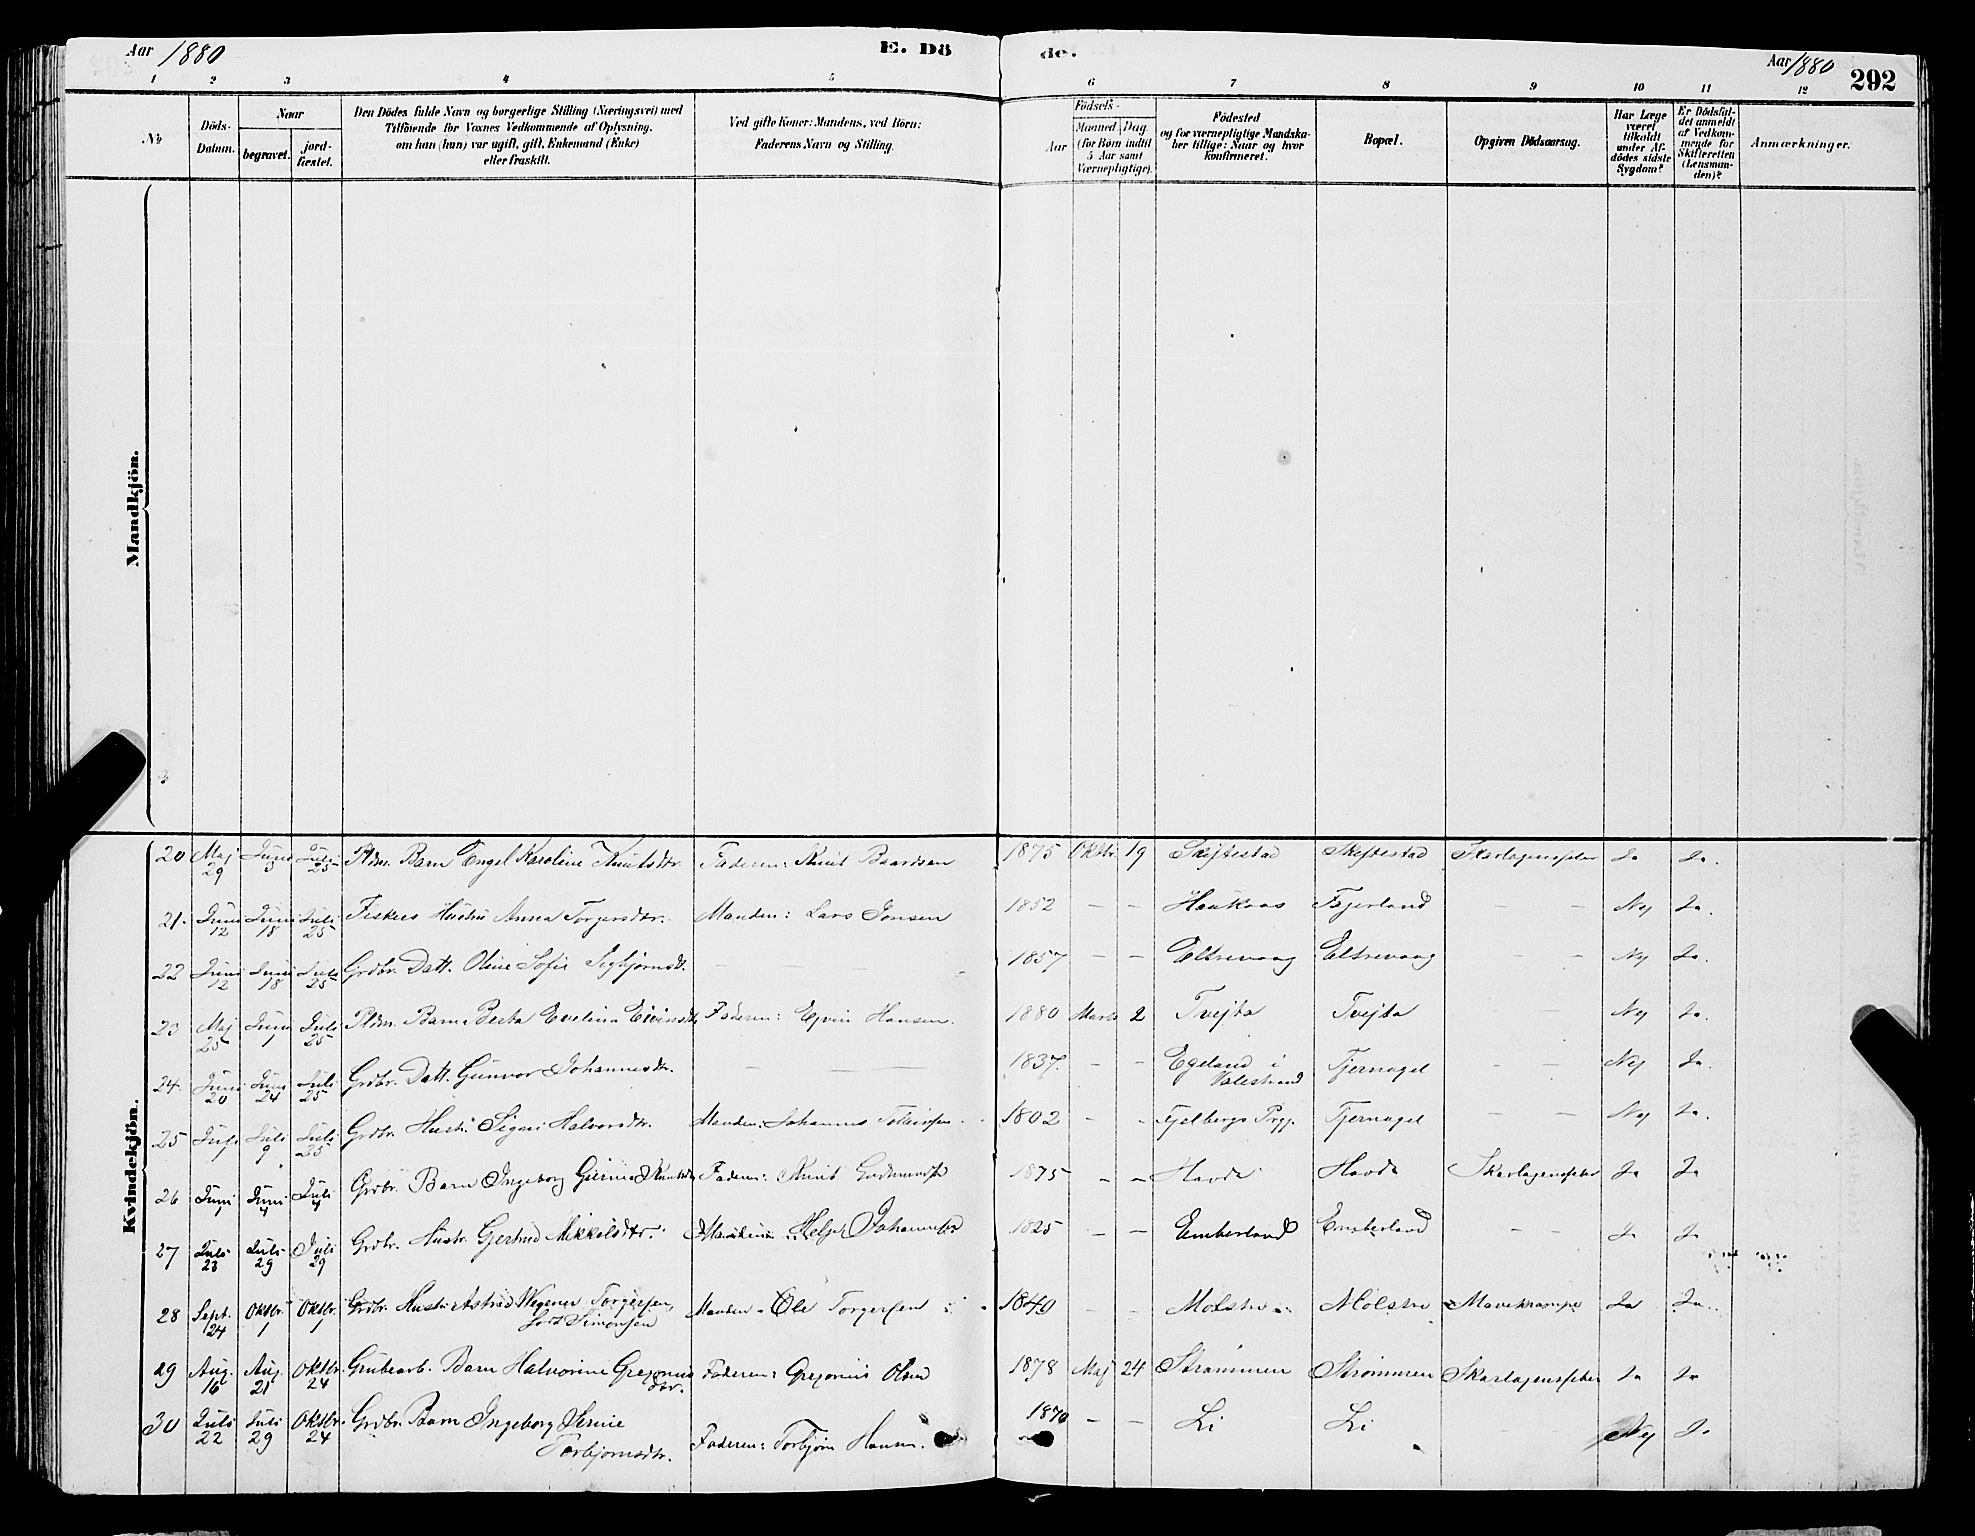 Aar 1880
E. Dö
de.
Aar 1880
292
1 2 3 4 5 6 7 8 9 10 11 12
No.
Döds-Datum.
Naar
begravet.
jord-fæstet.
Den Dödes fulde Navn og borgerlige Stilling (Næringsvei) med
Tilföiende for Voxnes Vedkommende af Oplysning,
om han (hun) var ugift, gift, Enkemand (Enke)
eller fraskilt.
Ved gifte Koner: Mandens, ved Börn:
Faderens Navn og Stilling.
Födsels-
Aar
Maaned Dag
(for Börn indtil
5 Aar samt
Værnepligtige).
Födested
og for værnepligtige Mandska-
ber tillige: Naar og hvor
konfirmeret.
Bopæl.
Opgiven Dödsaarsag.
Har Læge
været
tilkaldt
under Af-
dödes sidste
Sygdom?
Er Dödsfal-
det anmeldt
af Vedkom-
mende for
Skifteretten
(Lensman-
den)?
Anmærkninger.
Mandkjön.
Kvindekjön.
20 Maj 29 Juni 5 Juli 25 Barn Engel Karoline Knutsdtr. Faderen: Knut Baardsen 1875 Oktbr 19 Skiftestad Skiftestad Skarlagensfeber Ja Ja.
21. Juni 12 Juni 18 Juli 25 Fiskers Hustru Anna Torgersdtr. Manden: Lars Jonsen 1852 – – Haukaas Fagerland – – Nej Ja.
22 Juni 12 Juni 18 Juli 25 Grdbr. Datt. Oline Sofie Sigbjørnsdt. – 1857 – – Eltrevaag Eltrevaag – – Nej Ja.
23 Maj 25 Juni 1 Juli 25 Barn Berta Evelina Eivindsdtr Faderen: Ejvin Hansen. 1880 Marts 2 Tvejta Tvejta – – Nej Ja.
24. Juni 20 Juni 24 Juli 25 Grdbr. Datt. Gunvor Johannesdtr. – – – 1837. – – Egeland i Valestrand Tjernagel – – Nej Ja.
25 Juli 1 Juli 9 Juli 25 Grdbr. Hustr. Signi Halvorsdtr. Manden: Johannes 1802 – – Fjelbergs Prgj. Tjernagel – – Nej Ja.
26 Juni 1 Juni Juli Grdbr. Barn Ingeborg Knutsdtr Faderen: Knut 1875 – – Skarlagensfeber Ja Ja
27 Juli 23 Juli 29 Juli 29 Grdbr. Hustr. Gjertrud Mikkelsdtr. Manden: Helje Johannesen 1825 – – Emberland Emberland – – Ja Ja
28 Sept. 24 Oktbr. 1 Oktbr. 1 Grdbr. Hustr. Astrid Wegener Torgersen, født Simonsen Manden: Ole Torgersen 1849 – – Molstre Molstre Mavekrampe Ja Ja.
29 Aug. 16 Aug. 21 Oktbr. 24 Grubearb. Barn Halvorine Gregorius dtr. Faderen: Gregorius Olsen 1878 Maj 24 Strømmen Strømmen Skarlagensfeber Ja Ja
30 Juli 22 Juli 29 Oktbr. 24 Grdbr. Barn Ingeborg Serine Torbjørnsdtr. Faderen: Torbjørn Hansen. 1870 – – Li Li Nej Ja